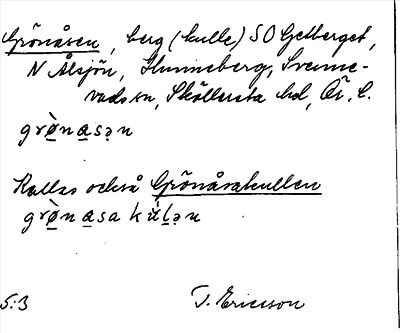 Grönåsen, berg (kulle) SO Getberget,
N Ålsjön, Hunneberg, Svenne-
vads sn, Sköllersta hd, Ör. l.
grø̀nasən
Kallas också Grönåsakullen
grø̀nasa kúlən
5:3 T. Ericsson